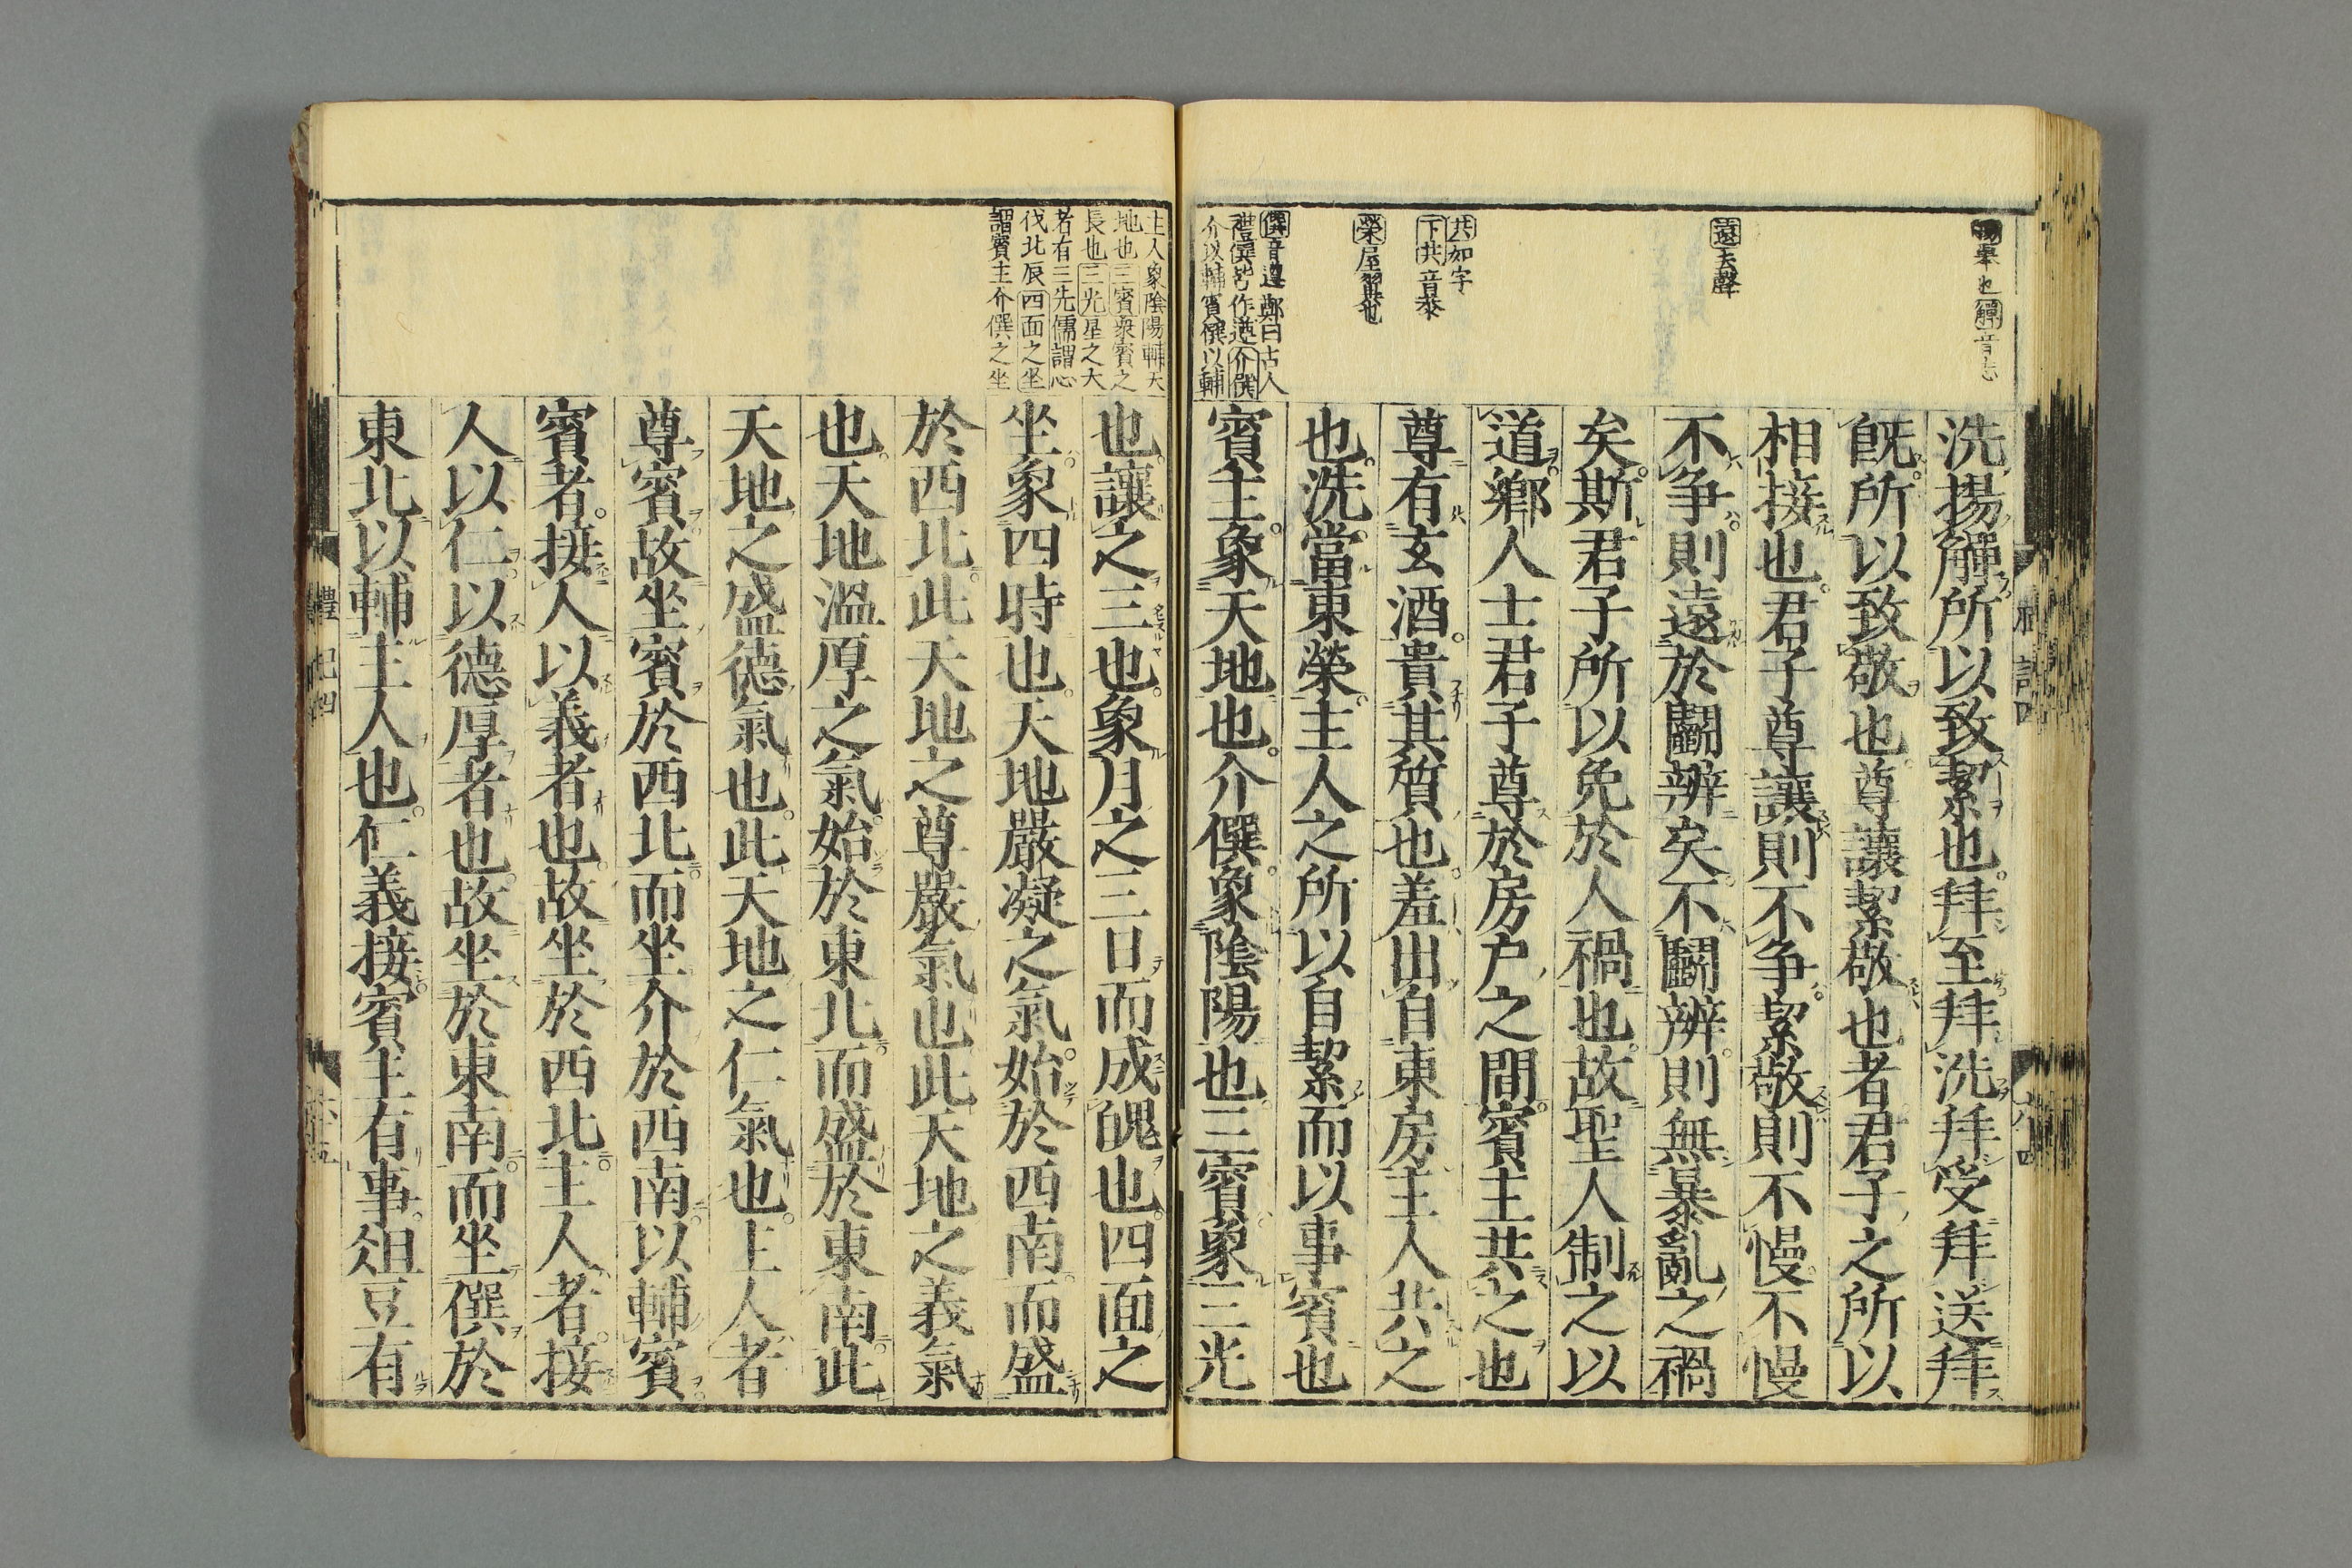 揚舉也觶音志
遠去聲
共如字
下共音恭
榮屋翼也
僎音遵鄭曰古人
禮僎皆作遵介僎
介以輔賓僎以輔
洗揚觶所以致絜也拜至拜洗拜受拜送拜
旣所以致敬也尊讓絜敬也者君子之所以
相接也君子尊讓則不爭絜敬則不慢不慢
不爭則遠於鬪辨矣不鬪辨則無暴亂之禍
矣斯君子所以免於人禍也故聖人制之以
道鄉人士君子尊於房户之間賓主共之也
尊有玄酒貴其質也羞出自東房主人共之
也洗當東榮主人之所以自絜而以事賓也
賓主象天地也介僎象陰陽也三賓象三光
主人象陰陽輔天
地也三賓衆賓之
長也三光星之大
者有三先儒謂心
伐北辰四面之坐
謂賓主介僎之坐
也讓之三也象月之三日而成魄也四面之
坐象四時也天地嚴凝之氣始於西南而盛
於西北此天地之尊嚴氣也此天地之義氣
也天地溫厚之氣始於東北而盛於東南此
天地之盛德氣也此天地之仁氣也主人者
尊賓故坐賓於西北而坐介於西南以輔賓
賓者接人以義者也故坐於西北主人者接
人以仁以德厚者也故坐於東南而坐僎於
東北以輔主人也仁義接賓主有事俎豆有
禮記四